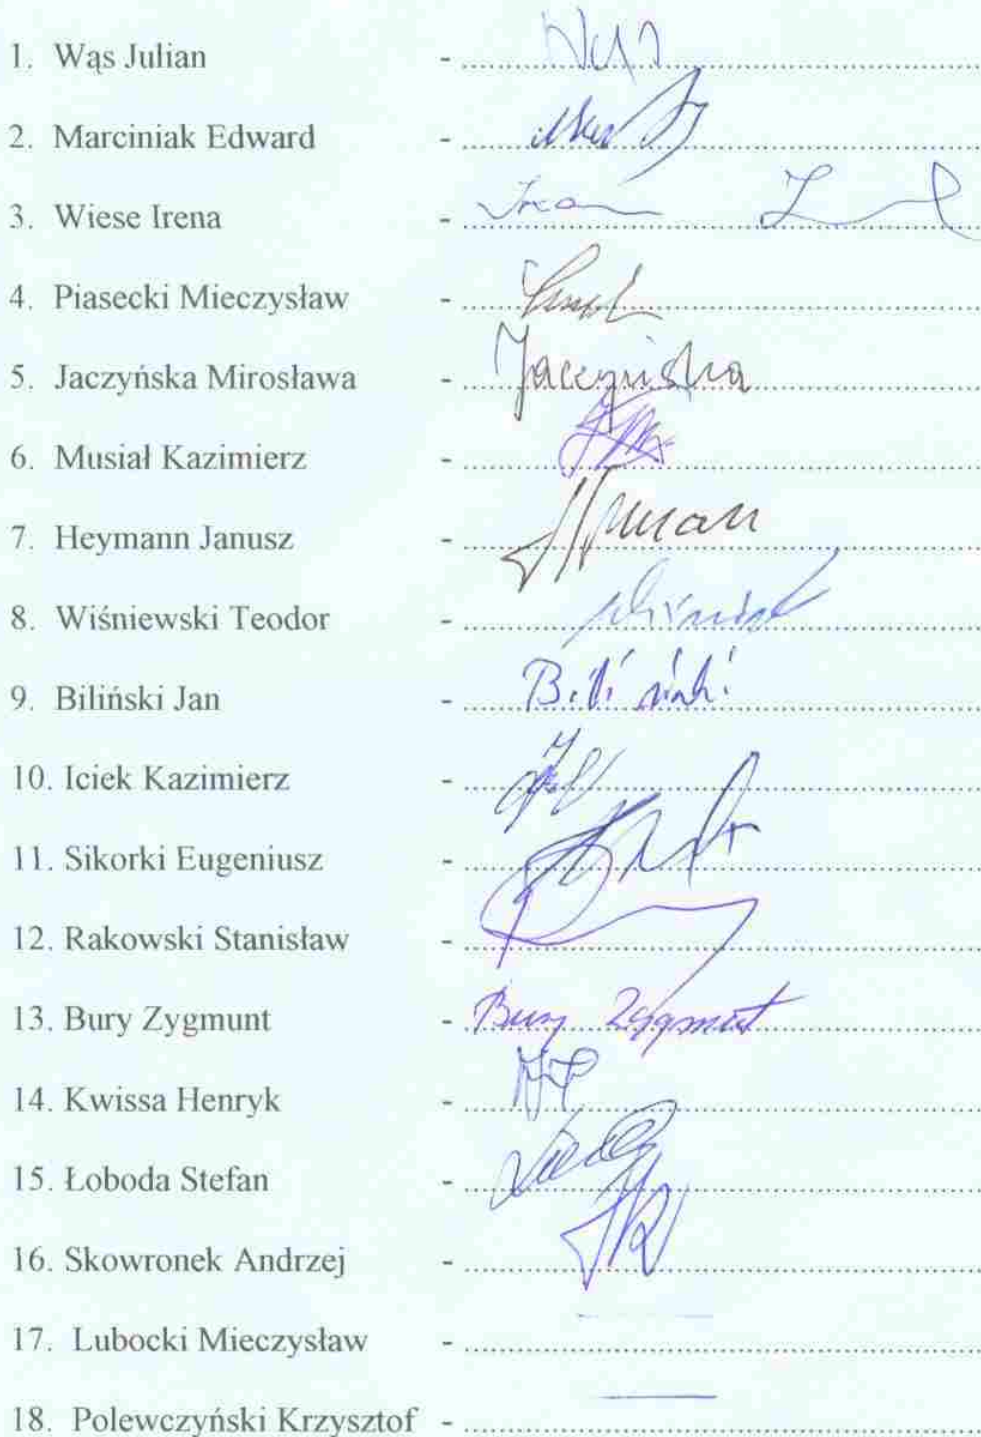 1. Wąs Julian - ....................
2. Marciniak Edward - ....................
3. Wiese Irena - ....................
4. Piasecki Mieczysław - ....................
5. Jaczyńska Mirosława - Jaczyńska
6. Musiał Kazimierz - ....................
7. Heymann Janusz - ....................
8. Wiśniewski Teodor - ....................
9. Biliński Jan - Biliński
10. Iciek Kazimierz - ....................
11. Sikorki Eugeniusz - ....................
12. Rakowski Stanisław - ....................
13. Bury Zygmunt - Bury Zygmunt
14. Kwissa Henryk - ....................
15. Łoboda Stefan - ....................
16. Skowronek Andrzej - ....................
17. Lubocki Mieczysław - ....................
18. Polewczyński Krzysztof - ....................